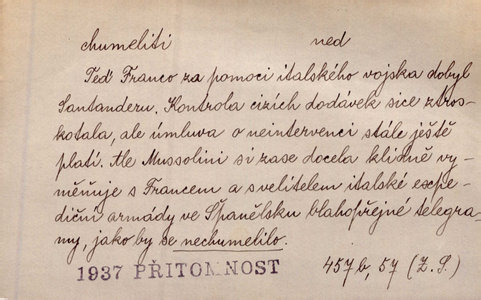 chumeliti ned
Teď Franco za pomoci italského vojska dobyl
Santanderu. Kontrola cizích dodávek sice ztros-
kotala, ale úmluva o neintervenci stále ještě
platí. Ale Mussolini si zase docela klidně vy-
měňuje s Francem a s velitelem italské expe-
diční armády ve Španělsku blahopřejné telegra-
my, jako by se nechumelilo.
1937 PŘITOMNOST 457b, 57 (Z. P.)